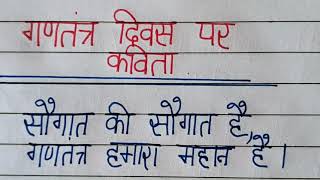 गणतंत्र दिवस पर
कविता
सौगात की सौगात है,
गणतंत्र हमारा महान है।